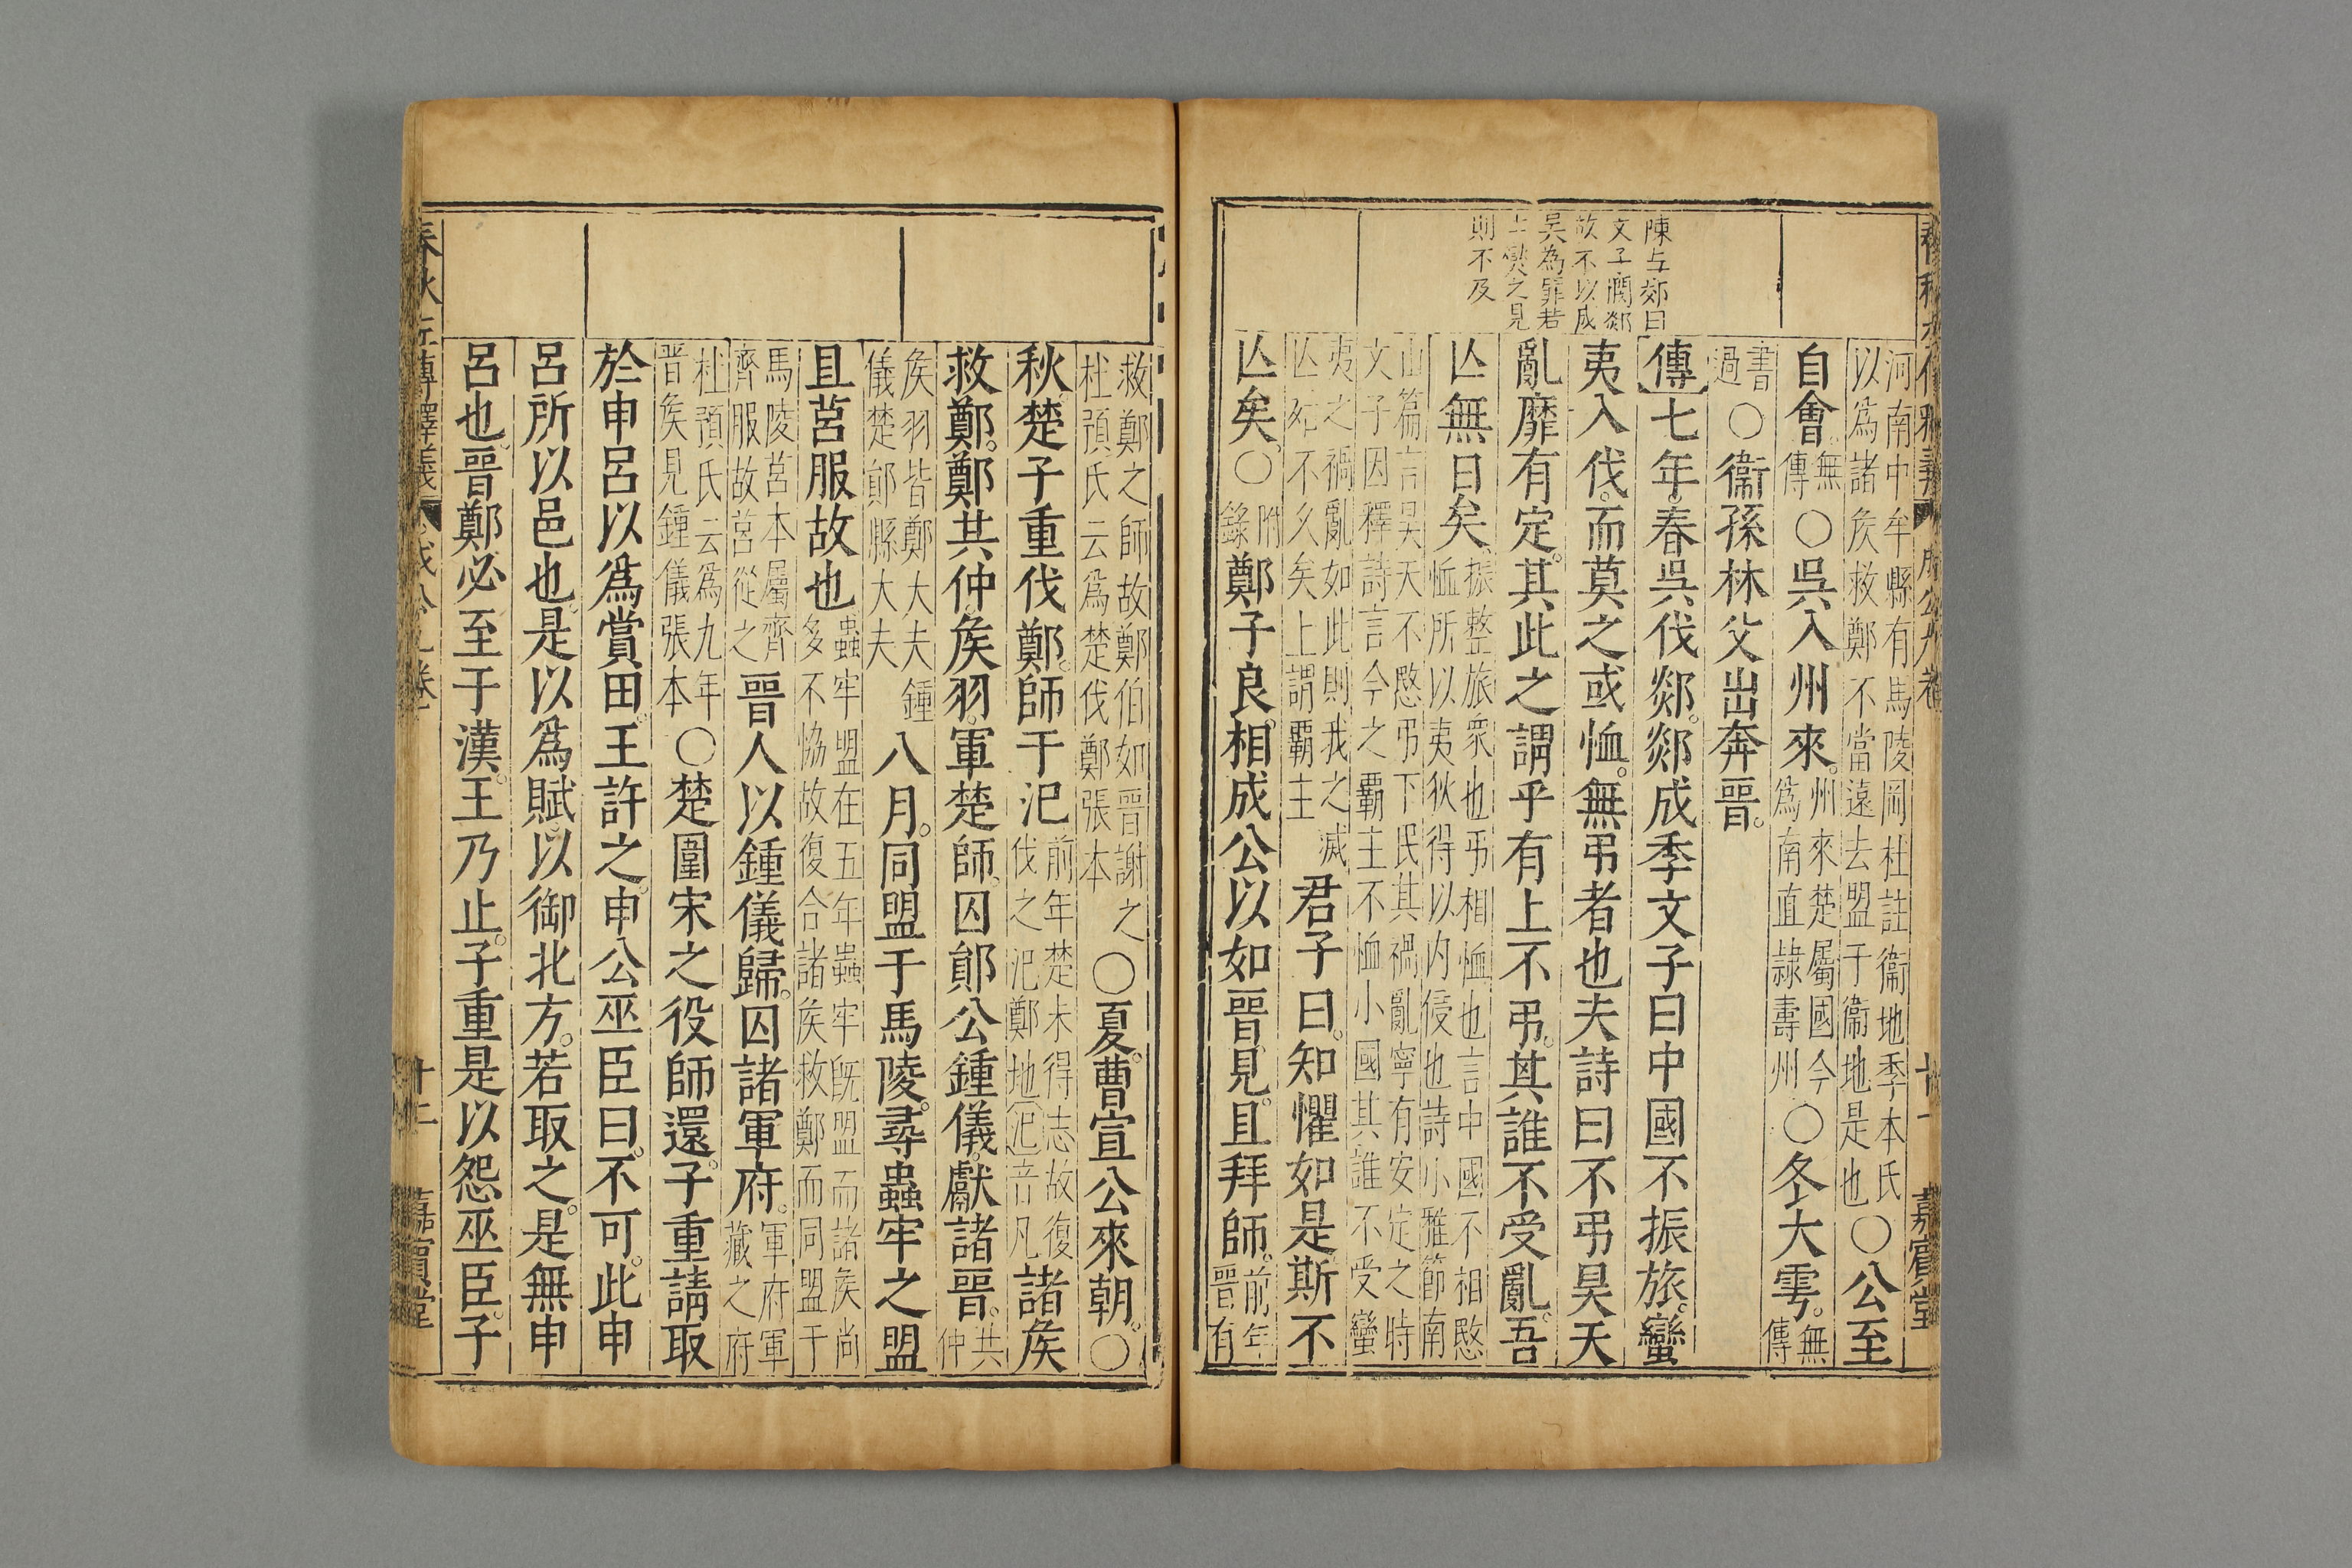 河南中牟縣有馬陵岡杜註衞地季本氏
以爲諸矦救鄭不當遠去盟于衞地是也〇公至
自會無傳〇吳入州來州來楚屬國今爲南直隷壽州〇冬大雩無傳
書過〇衞孫林父出奔晉
傳七年春吳伐郯郯成季文子曰中國不振旅蠻
夷入伐而莫之或恤無弔者也夫詩曰不弔昊天
亂靡有定其此之謂乎有上不弔其誰不受亂吾
亾無日矣振整旅衆也弔相恤也言中國不相愍
恤所以夷狄得以内侵也詩小雅節南
山篇言昊天不愍弔下民其禍亂寧有安定之時
文子因釋詩言今之覇主不恤小國其誰不受蠻
夷之禍亂如此則我之滅
亾矣不久矣上謂覇主君子曰知懼如是斯不
亾矣〇附錄鄭子良相成公以如晉見且拜師前年晉有
陳与郊曰
文子憫郯
故不以成
吳為罪若
士燮之見
則不及
成公九卷
嘉賓堂
救鄭之師故鄭伯如晉謝之
杜預氏云爲楚伐鄭張本〇夏曹宣公來朝〇
秋楚子重伐鄭師于汜前年楚未得志故復伐之汜鄭地汜音凡諸矦
救鄭鄭共仲矦羽軍楚師囚鄖公鍾儀獻諸晉共仲
矦羽皆鄭大夫鍾儀楚鄖縣大夫八月同盟于馬陵尋蟲牢之盟
且莒服故也蟲牢盟在五年蟲牢旣盟而諸矦尚
多不恊故復合諸矦救鄭而同盟于
馬陵莒本屬齊齊服故莒從之晉人以鍾儀歸囚諸軍府軍府軍藏之府
杜預氏云爲九年晉矦見鍾儀張本〇楚圍宋之役師還子重請取
於申呂以爲賞田王許之申公巫臣曰不可此申
呂所以邑也是以爲賦以御北方若取之是無申
呂也晉鄭必至于漢王乃止子重是以怨巫臣子
春秋左傳釋義
十二
嘉賓堂